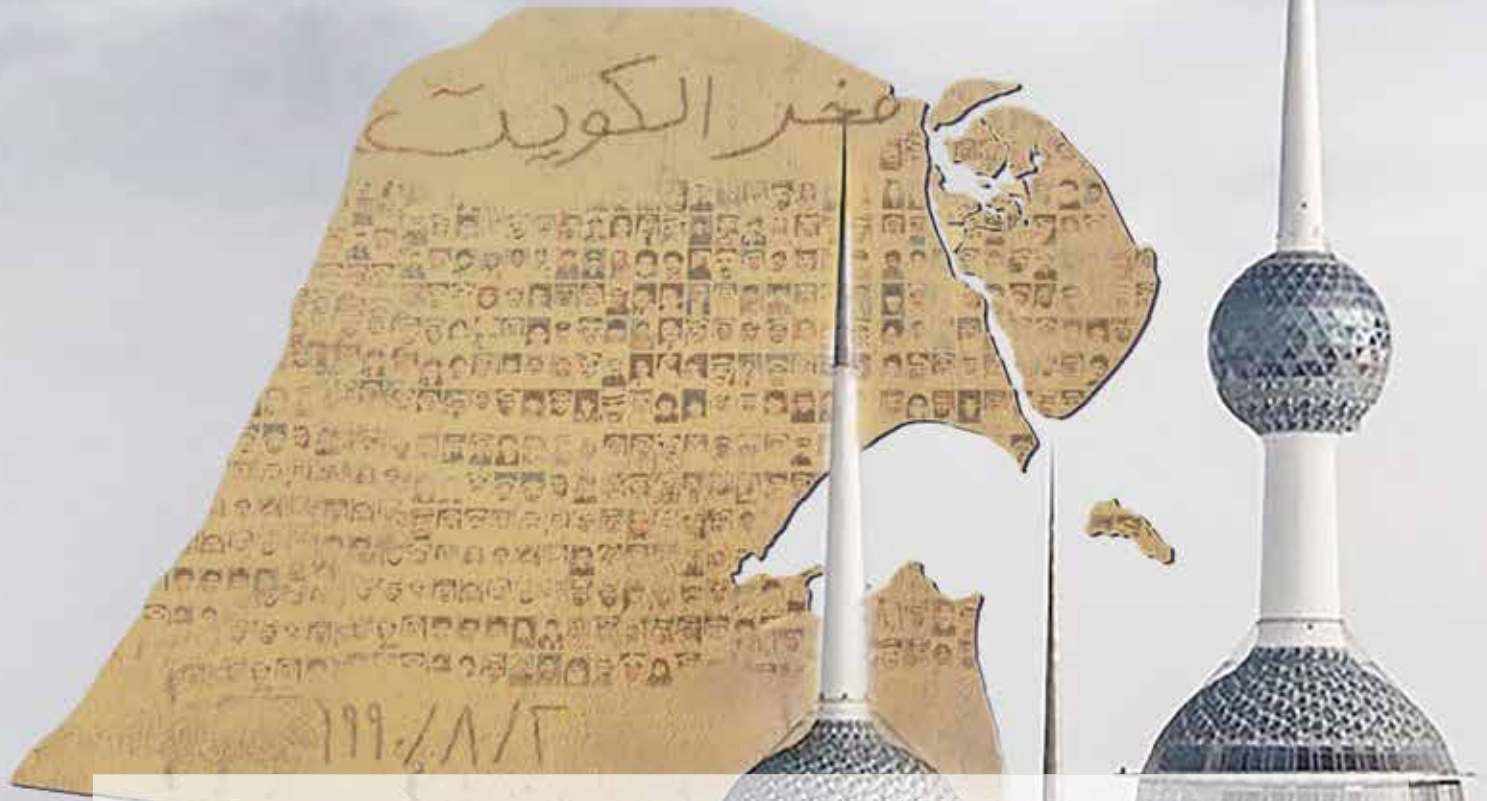 فخر الكويت
١٩٩٠/٨/٢